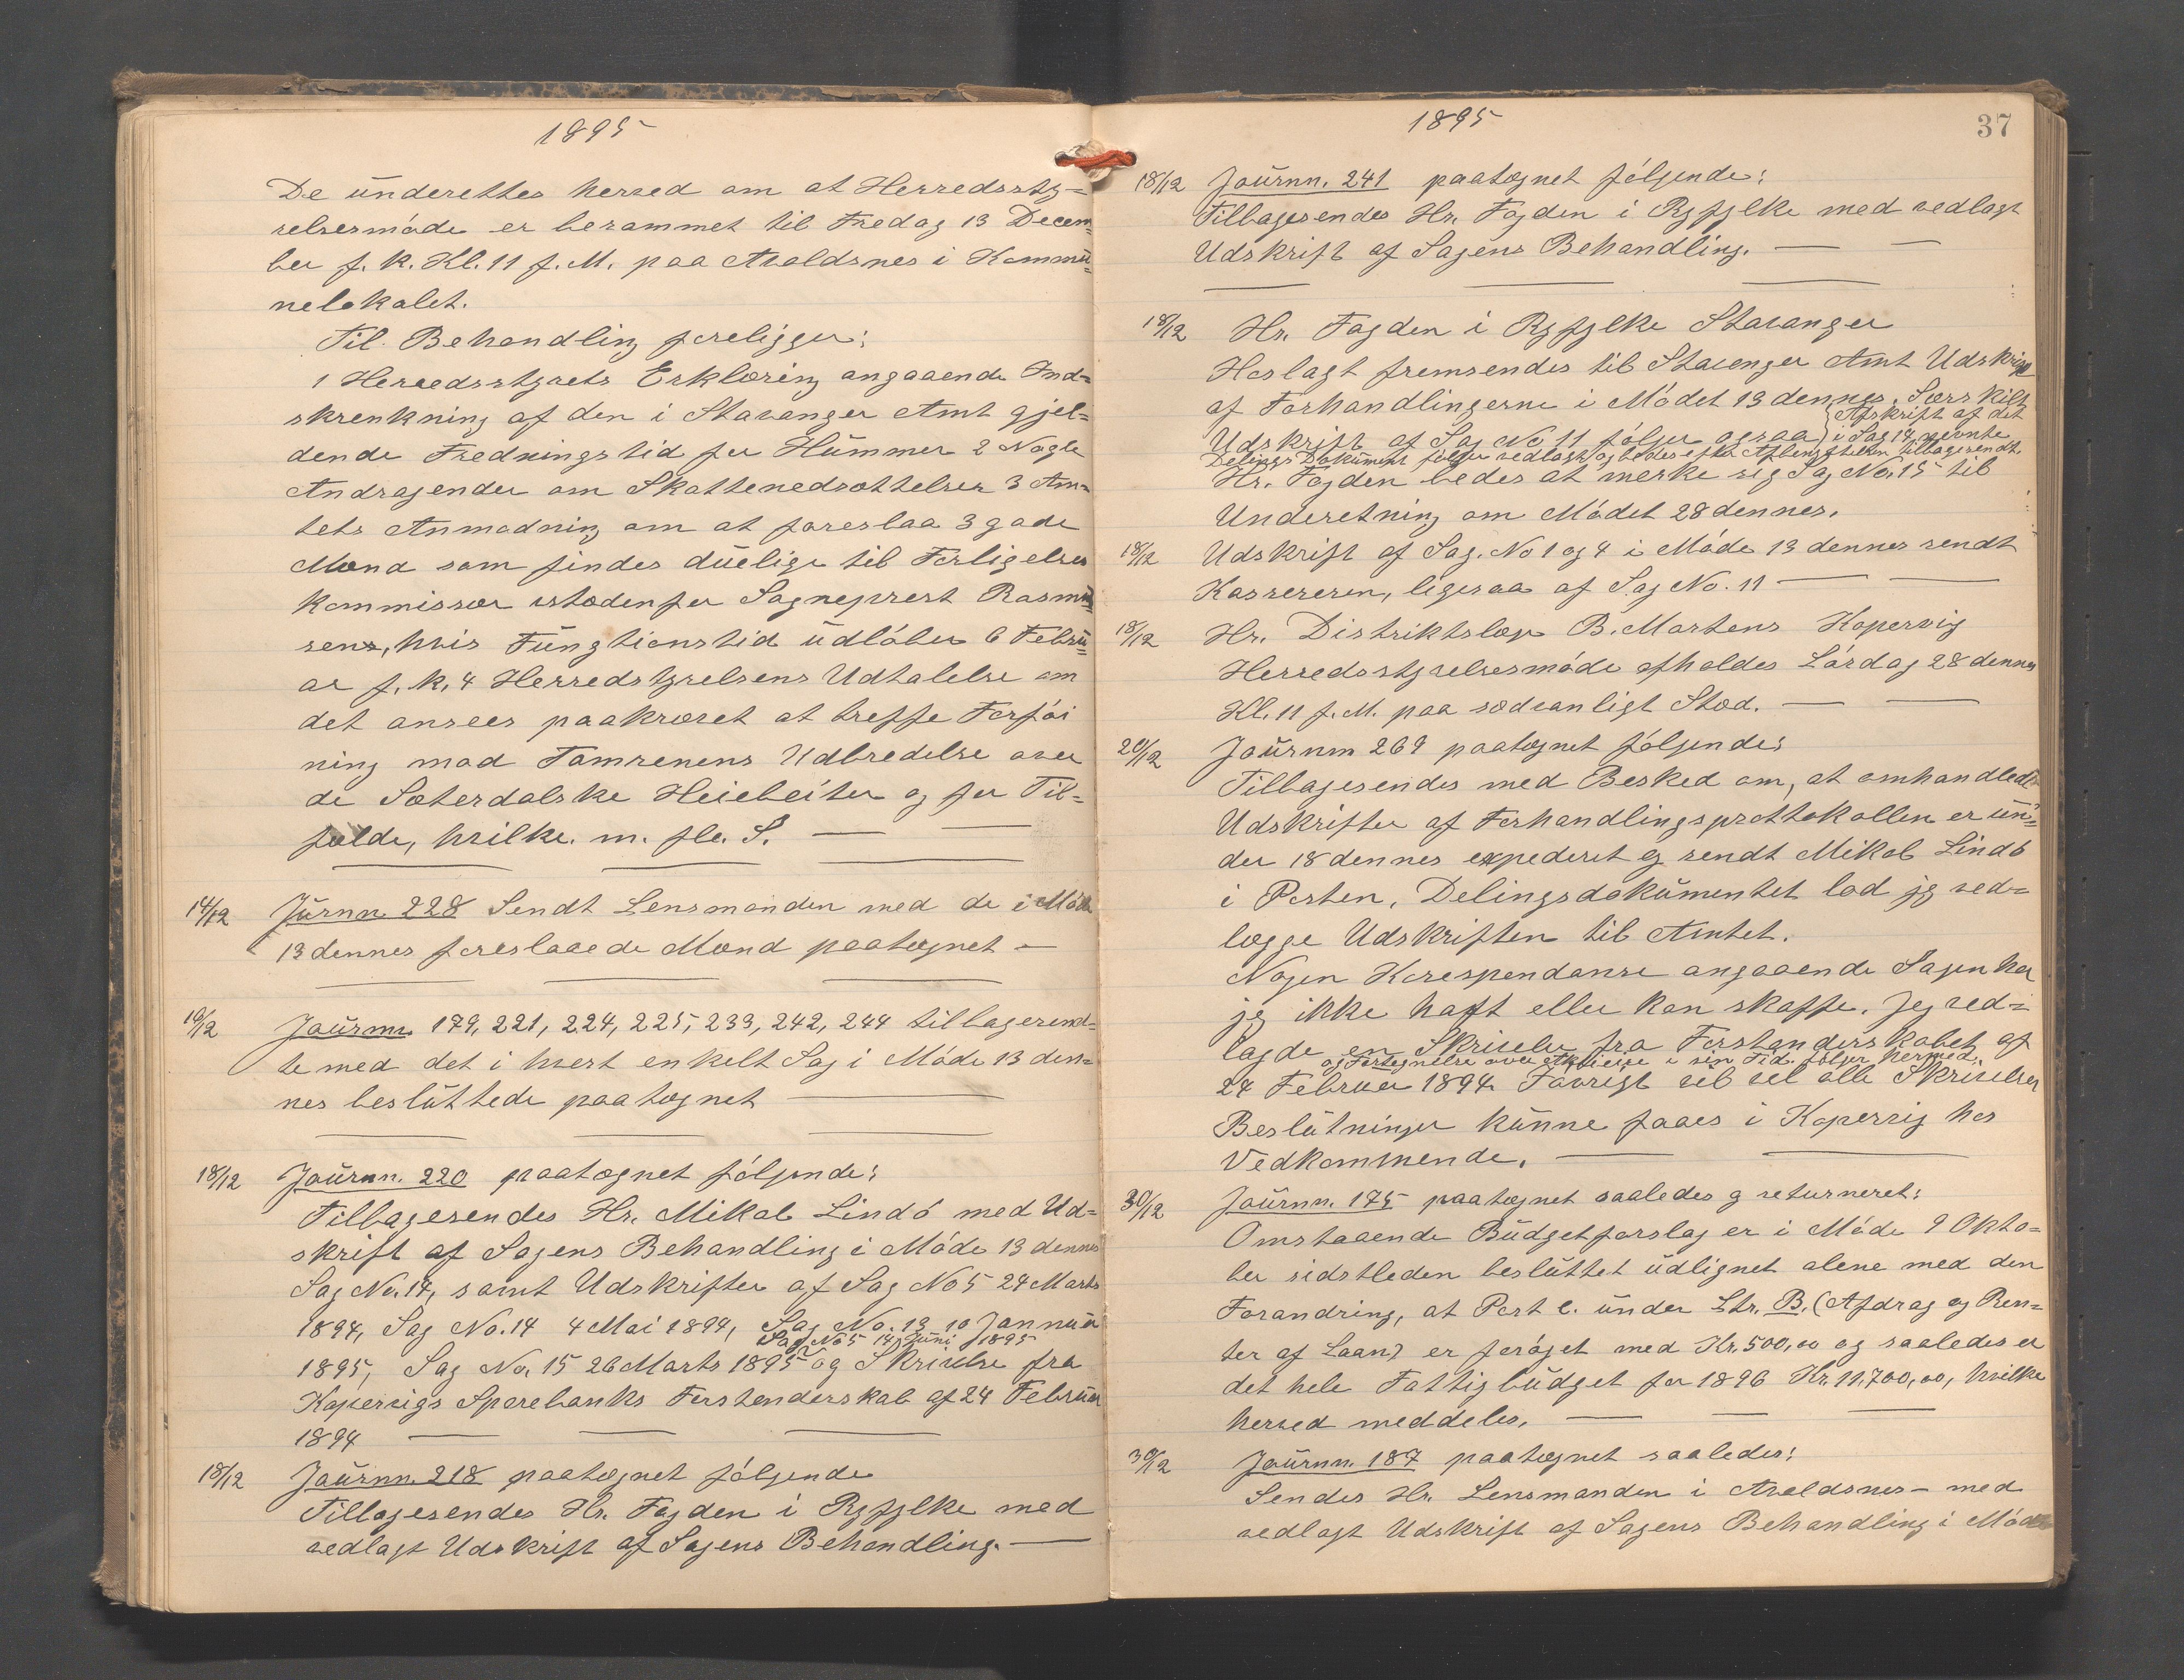 1895
De underettes herved om at Herredssty-
relsesmøde er berammet til Fredag 13 Decem-
ber f. k. Kl. 11 f. M. paa Avaldsnes i Kommu-
nelokalet.
Til Behandling foreligger:
1 Herredsstyrets Erklæring angaaende Ind-
skrenkning af den i Stavanger Amt gjel-
dende Fredningstid for Hummer 2 Nogle
Andragender om Skattenedsættelser 3 Am-
tets Anmodning om at foreslaa 3 gode
Mænd som findes duelige til Forligelses
kommissær istedenfor Sogneprest Rasmus
sens, hvis Fungtionstid udløber 6 Febru-
ar f. k. 4 Herredstyrelsens Udtalelse om
det ansees paakrævet at treffe Forføi
ning mod Tamrenens Udbredelse over
de Sæterdalske Heiebeiter og for Til-
fælde, hvilke. m. fle. S.
14/12 Jurnn. 228 Sendt Lensmanden med de i Møde
13 dennes foreslaaede Mænd paategnet -
16/12 Journn. 179, 221, 224, 225, 233, 242, 244 tilbagesend-
te med det i hvert enkelt Sag i Møde 13 den-
nes besluttede paategnet
18/12 Journn. 220 paategnet følgende:
Tilbagesendes Hr. Mikal Lindø med Ud-
skrift af Sagens Behandling i Møde 13 dennes
Sag No. 14, samt Udskrifter af Sag No 5 24 Marts
1894, Sag No. 14 4 Mai 1894, Sag No. 13 10 Januar
Sag No 5 14 Juni 1895
1895, Sag No. 15 26 Marts 1895 og Skrivelse fra
Kopervigs Sparebanks Forstanderskab af 24 Februar
1894
18/12 Journn. 218 paategnet følgende
Tillagesendes Hr. Fogden i Ryfylke med
vedlagt Udskrift af Sagens Behandling.
1895
37
18/12 Journn. 241 paategnet følgende:
Tilbagesendes Hr. Fogden i Ryfylke med vedlagt
Udskrift af Sagens Behandling.
18/12 Hr. Fogden i Ryfylke Stavanger
Hoslagt fremsendes til Stavanger Amt Udskrift
af Forhandlingerne i Mødet 13 dennes. Særskilt
Afskrift af det
Udskrift af Sag No 11 følger ogsaa i Sag 14 nevnte
Delings Dokument følger vedlagt og bedes efter tilbagesendt.
Hr. Fogden bedes at merke sig Sag No. 15 til
Underetning om Mødet 28 dennes.
18/12 Udskrift af Sag. No 1 og 4 i Møde 13 dennes sendt
Kassereren, ligesaa af Sag No. 11
18/12 Hr. Distriktslæge B. Martens Kopervig
Herredsstyrelsesmøde afholdes Lørdag 28 dennes
Kl. 11 f. M. paa sædvanligt Sted.
20/12 Journn 269 paategnet følgende:
Tilbagesendes med Besked om, at omhandlede
Udskrifter af Forhandlingsprottokollen er un-
der 18 dennes expederet og sendt Mikal Lindø
i Posten. Delingsdokumentet lod jeg ved-
lægge Udskriften til Amtet.
Nogen Korespondanse angaaende Sagen har
jeg ikke haft eller kan skaffe. Jeg ved-
lagde en Skrivelse fra Forstanderskabet af
og Fortegnelse over Aktieeie i sin Tid følger hermed.
24 Februar 1894. Favrigt vil vel alle Skrivelser
Beslutninger kunne faaes i Kopervig hos
Vedkommende.
30/12 Journn. 175 paategnet saaledes og returneret:
Omstaaende Budgetforslag er i Møde 9 Okto-
ber sidstleden besluttet udlignet alene med den
Forandring, at Post c. under Ltr. B. (Afdrag og Ren-
ter af Laan) er forøget med Kr. 500,00 og saaledes er
det hele Fattigbudget for 1896 Kr. 11.700,00, hvilke
herved meddeles.
30/12 Journn. 187 paategnet saaledes:
Sendes Hr. Lensmanden i Avaldsnes - med
vedlagt Udskrift af Sagens Behandling i Møde